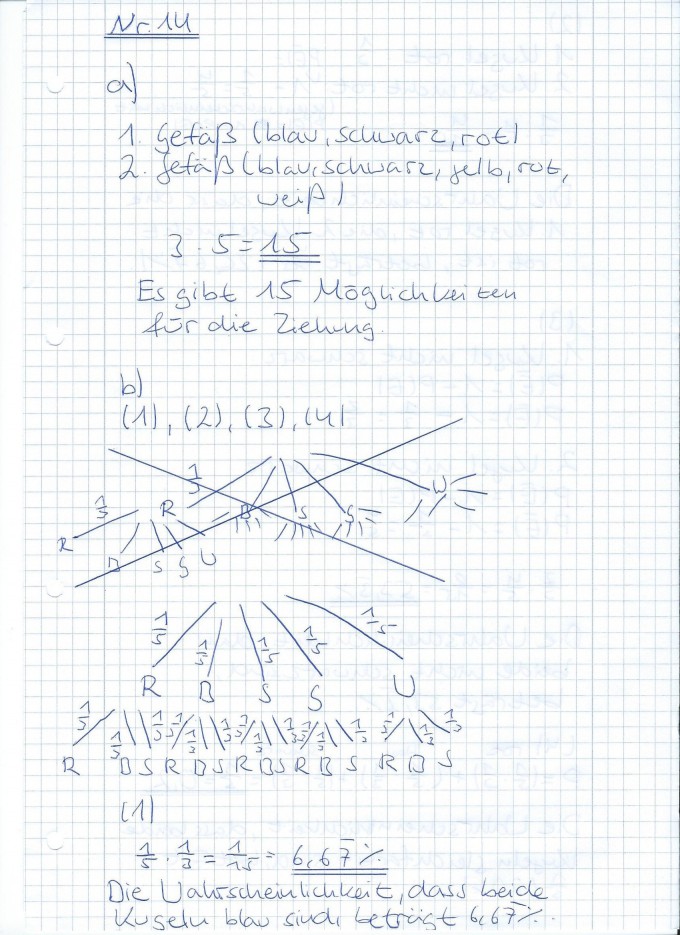 Nr. 14
a)
1. Gefäß (blau, schwarz, rot)
2. Gefäß (blau, schwarz, gelb, rot,
weiß)
3 · 5 = 15
Es gibt 15 Möglichkeiten
für die Ziehung.
b)
(1), (2), (3), (4)
1/3
1/3 R B S G W
R B S G W
1/5 1/5 1/5 1/5 1/5
R B S G W
1/3 1/3 1/3 1/3 1/3 1/3 1/3 1/3 1/3 1/3 1/3
R B S R B S R B S R B S R B S
(1)
1/5 · 1/3 = 1/15 = 6,67%
Die Wahrscheinlichkeit, dass beide
Kugeln blau sind, beträgt 6,67%.